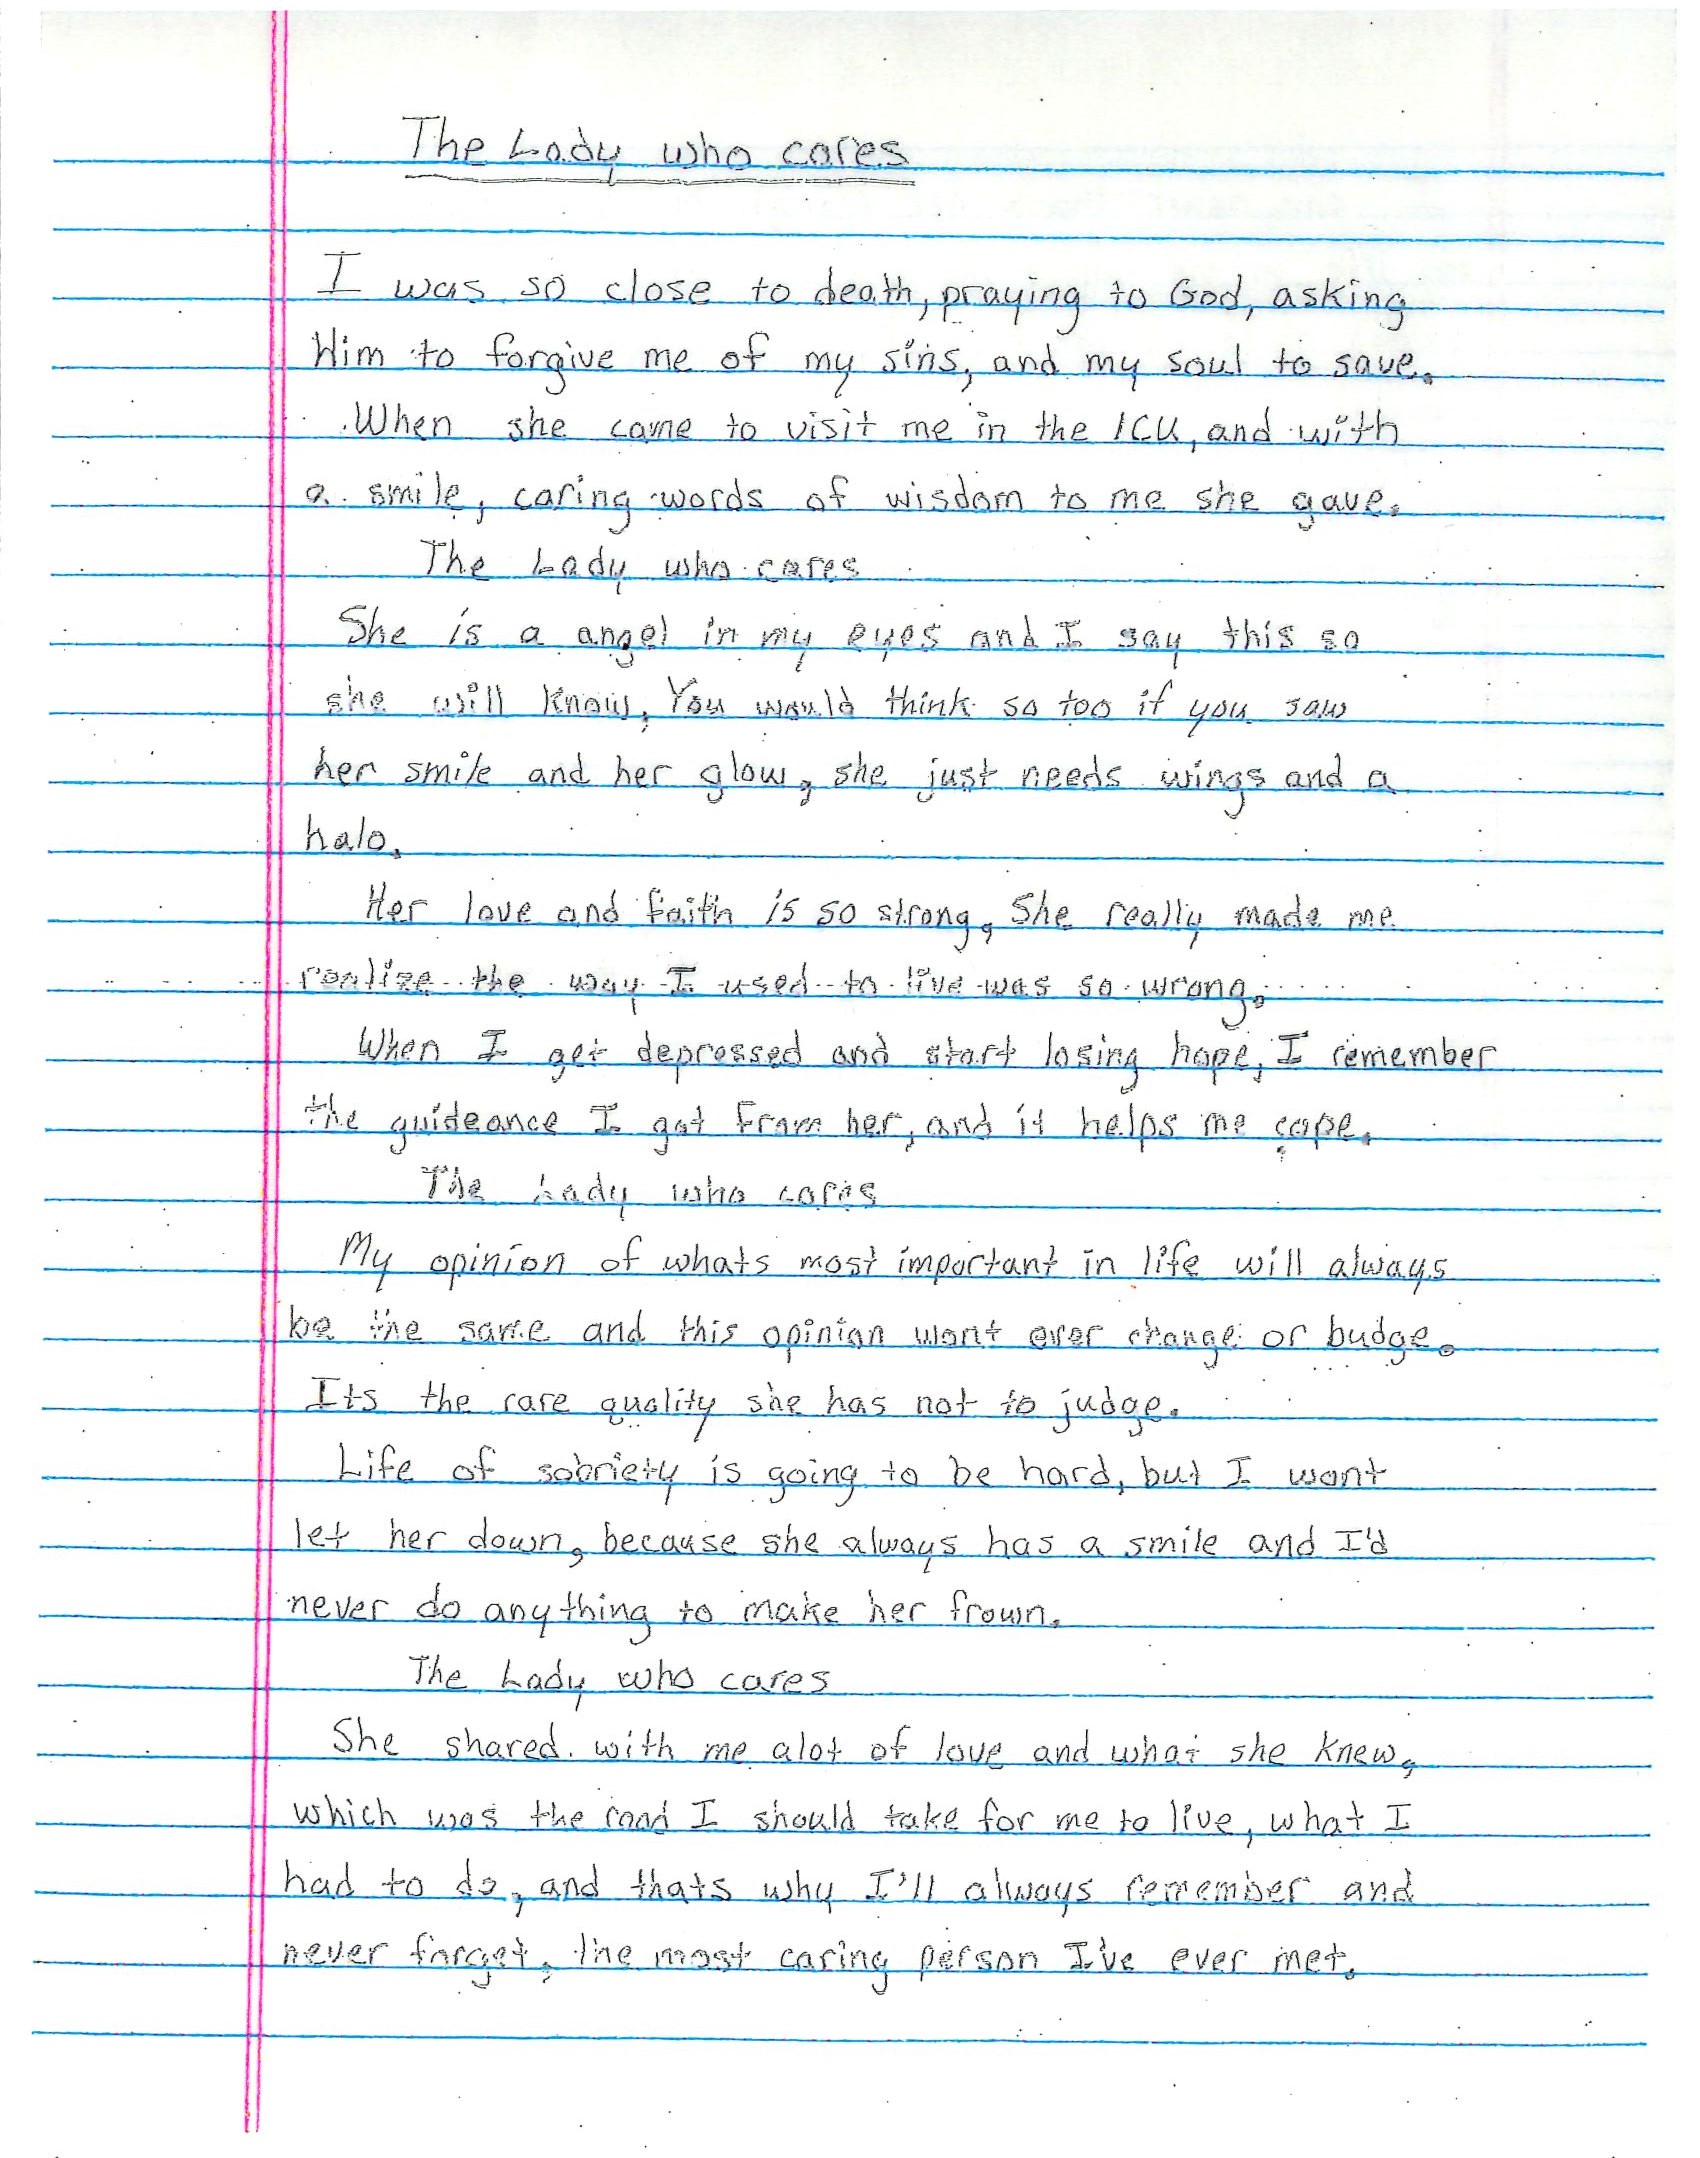 The Lady who cares
I was so close to death, praying to God, asking
Him to forgive me of my sins, and my soul to save.
When she came to visit me in the ICU, and with
a smile, caring words of wisdom to me she gave.
The Lady who cares
She is a angel in my eyes and I say this so
she will know, You would think so too if you saw
her smile and her glow, she just needs wings and a
halo.
Her love and faith is so strong, She really made me
realize the way I used to live was so wrong.
When I get depressed and start losing hope, I remember
the guideance I got from her, and it helps me cope.
The Lady who cares
My opinion of whats most important in life will always
be the same and this opinion wont ever change or budge.
Its the rare quality she has not to judge.
Life of sobriety is going to be hard, but I wont
let her down, because she always has a smile and I'd
never do anything to make her frown.
The Lady who cares
She shared with me alot of love and what she knew,
which was the road I should take for me to live, what I
had to do, and thats why I'll always remember and
never forget, the most caring person I've ever met.